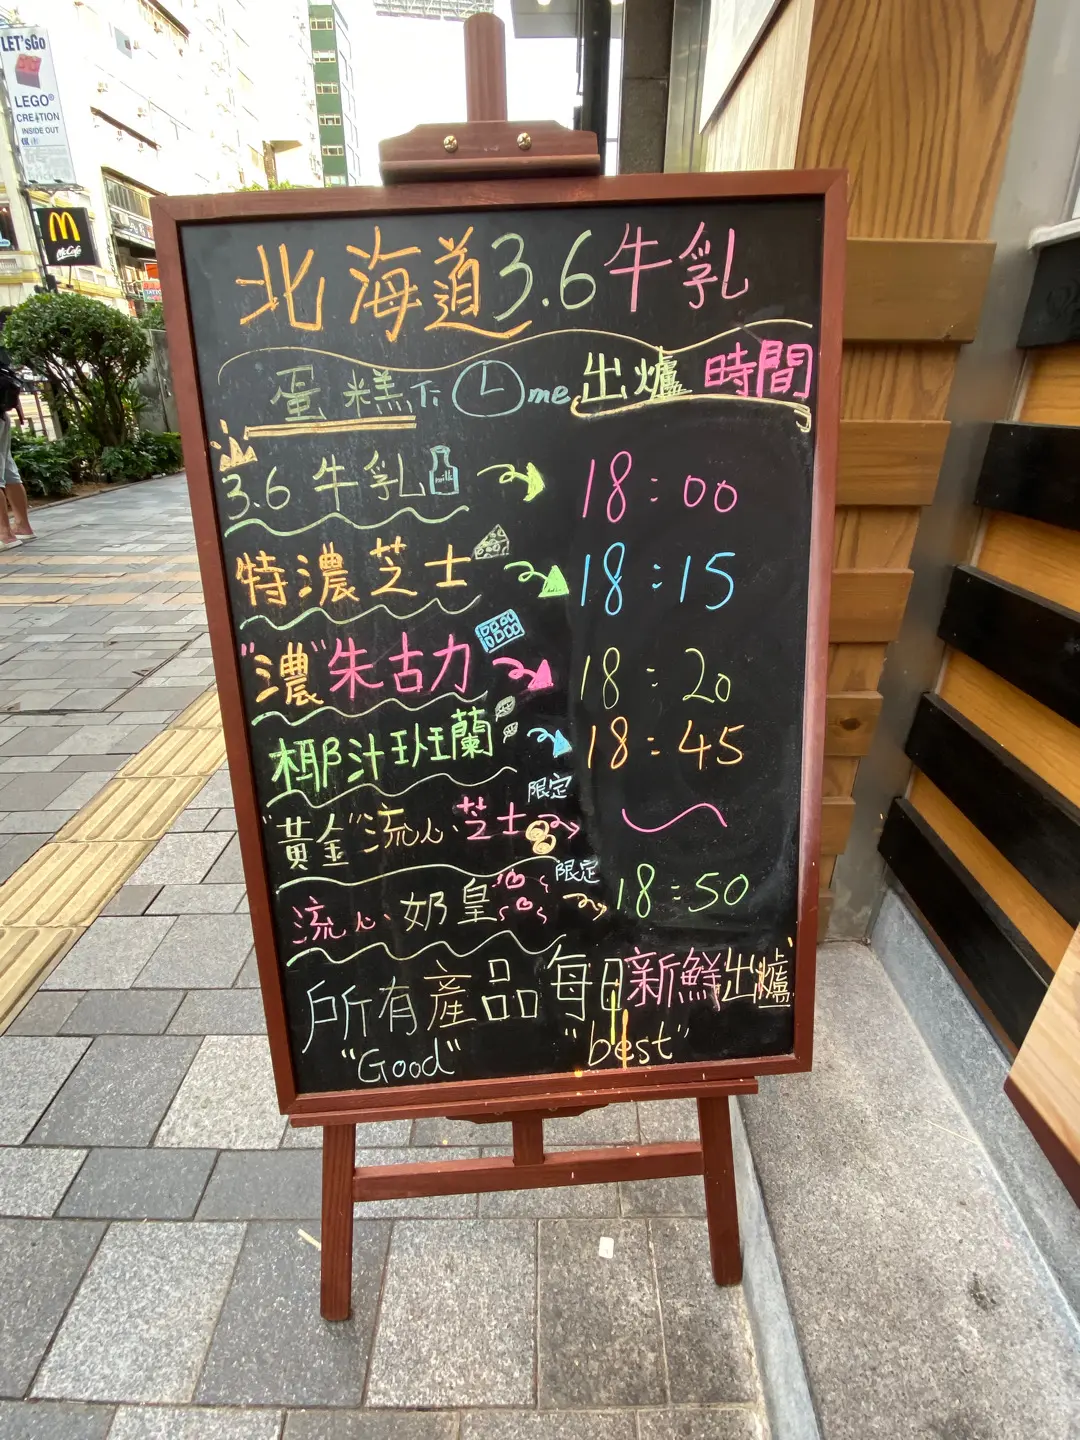 LET'sGo
LEGO®
CREATION
INSIDE OUT
M
McCafé
北海道3.6牛乳
蛋糕 Ti me 出爐時間
3.6牛乳 milk 18:00
特濃芝士 18:15
"濃"朱古力 18:20
椰汁班蘭 18:45
"黃金"流心芝士 限定
流心奶皇 限定 18:50
所有產品每日新鮮出爐
"Good" "best"